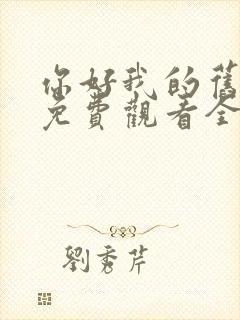 你好我的舊
免費觀看全
劉秀芹